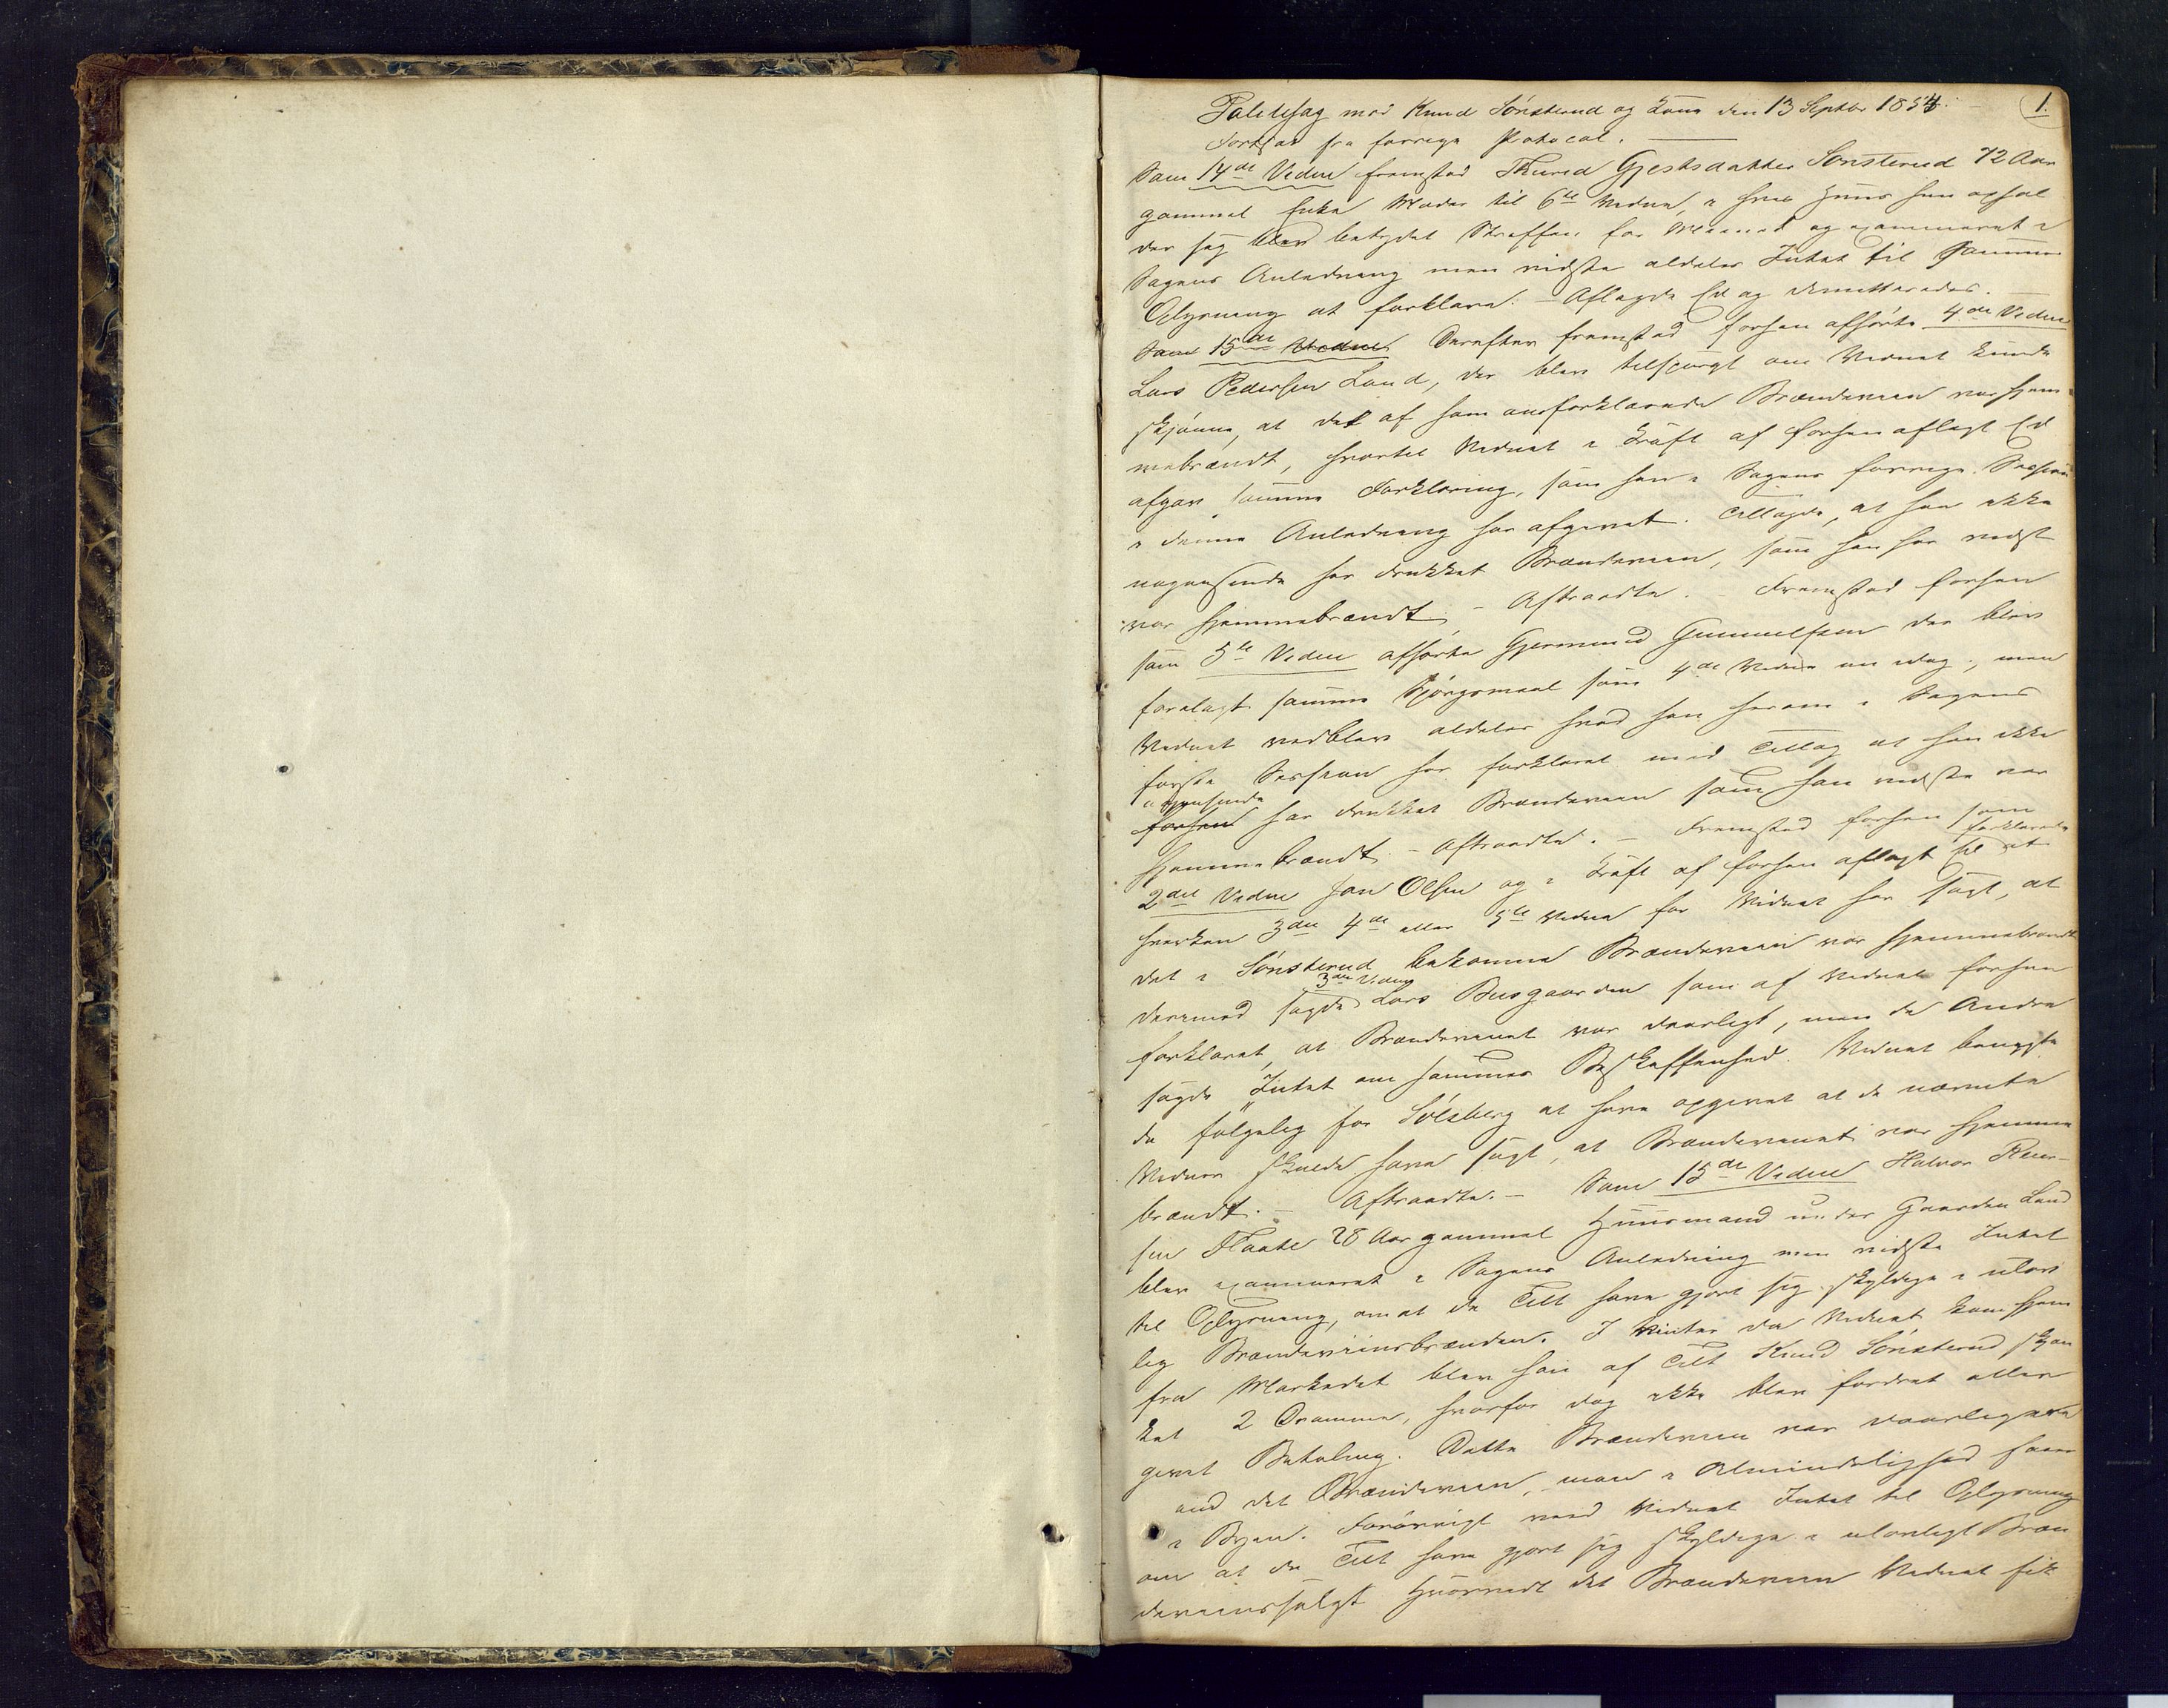 1.
Politisag mod Knud Sønsterud og Kone den 13 Septbr 1854
Fortsat fra forrige Protocol.
Som 14de Vidne fremstod Thurid Gjestsdatter Sønsterud 72 Aar
gammel Enke Moder til 6te Vidne, i hvis Huus hun ophol
der sig blev betydet Straffen for Meened og examineret i
Sagens Anledning men vidste aldeles Intet til Sammes
Oplysning at forklare. – Aflagde Ed og dimitteredes. –
Som 15de Vidne Derefter fremstod forhen afhørte 4de Vidne
Lars Pedersen Land, der blev tilspurgt om Vidnet kunde
skjønne, at det af ham omforklarede Brændeviin var hjem
mebrændt, hvortil Vidnet i Kraft af forhen aflagt Ed
afgav samme Forklaring, som han i Sagens forrige Session
i denne Anledning har afgivet. Tillagde, at han ikke
nogensinde har drukket Brændeviin, som han har vidst
var hjemmebrændt. – Aftraadte. – Fremstod forhen
som 5te Vidne afhørte Gjermund Gunnulfsen der blev
forelagt samme Spørgsmaal som 4de Vidne nu idag, men
Vidnet vedblev aldeles hvad han herom i Sagens
første Session har forklaret med Tillæg at han ikke
nogensinde
forhen har drukket Brændeviin som han vidste var
hjemmebrændt. – Aftraadte. – Fremstod forhen som
2det Vidne Jon Olsen og i Kraft af forhen aflagt Ed forklarede at
hverken 3die 4de eller 5te Vidne for Vidnet har sagt, at
det i Sønsterud bekomne Brændeviin var hjemmebrændt
derimod sagde 3die Vidne Lars Busgaarden som af Vidnet forhen
forklaret, at Brændevinet var daarligt, men de Andre
sagde Intet om sammes Beskaffenhed. Vidnet benægte
de følgelig for Solberg at have opgivet at de nævnte
Vidner skulde have sagt, at Brændevinet var hjemme
brændt. – Aftraadte. – Som 15de Vidne Halvor Kitil-
sen Flaate 28 Aar gammel Huusmand under Gaarden Land
blev examineret i Sagens Anledning men vidste Intet
til Oplysning, om at de Tilt have gjort sig skyldige i ulov
lig Brændeviinsbrænden. I Vinter da Vidnet kom hjem
fra Markedet blev han af Tilt Knud Sønsterud skjæn
ket 2 Dramme, hvorfor dog ikke blev fordret eller
givet Betaling. Dette Brændeviin var daarligere
end det Brændeviin, man i Almindelighed faaer
i Byen. Forøvrigt veed Vidnet Intet til Oplysning
om at de Tilt have gjort sig skyldige i ulovligt Bræn
deviinssalgt Hvorvidt det Brændeviin Vidnet fik